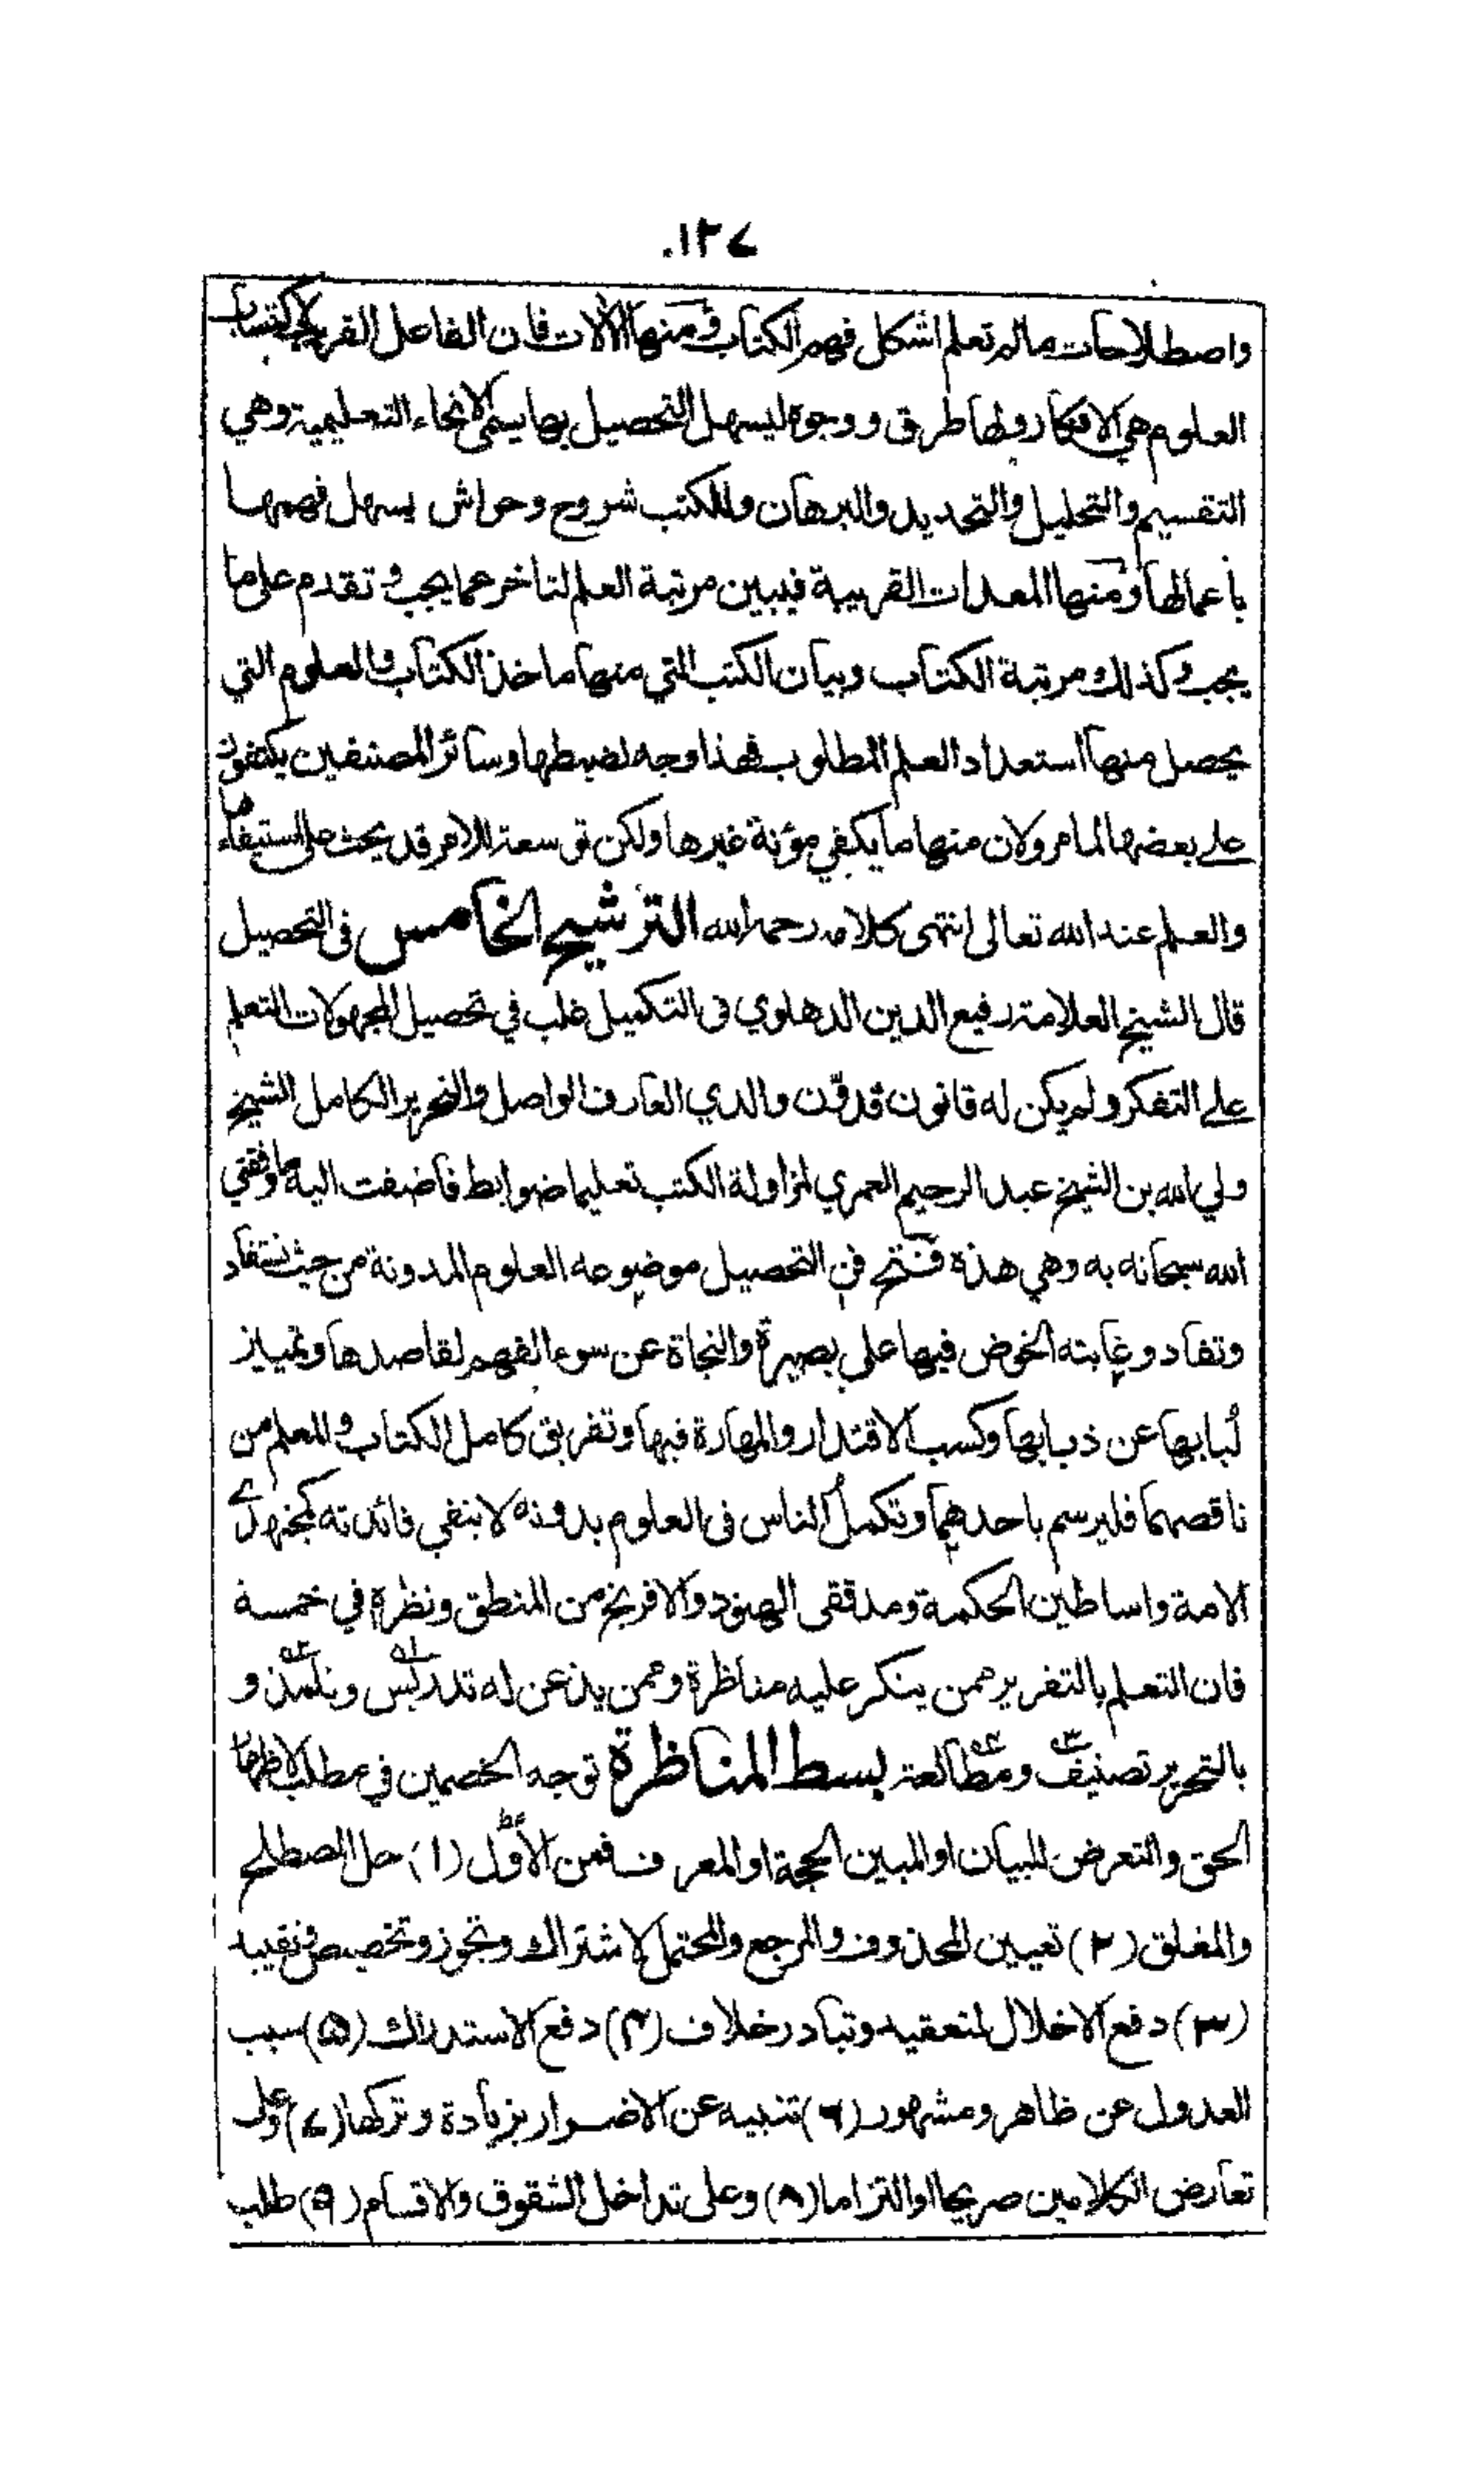 ١٢٧
واصطلاحات مالم تعلم اشكل فهم الكتاب ومنها الآلات فان الفاعل القريب لاكتساب
العلوم هي الافكار ولها طرق ووجوه ليسهل التحصيل بها يسمى الانحاء التعليمية وهي
التقسيم والتحليل والتحديد والبرهان وللكتب شروح وحواش يسهل فهمها
بأعمالها ومنها المعدات القريبة فيبين مرتبة العلم لتاخر عما يجب وتقدم على ما
يجب وكذلك مرتبة الكتاب وبيان الكتب التي منها ماخذ الكتاب والعلوم التي
يحصل منها استعداد العلم المطلوب فهذا وجه لضبطها وسائر المصنفين يكتفون
على بعضها لما مر ولان منها ما يكفي مؤنة غيرها ولكن توسعة للامر قد يحث على استيفائها
والعلم عند الله تعالى انتهى كلامه رحمه الله الترشيح الخامس فى التحصيل
قال الشيخ العلامة رفيع الدين الدهلوي فى التكميل غلب في تحصيل المجهولات التعلم
على التفكر ولم يكن له قانون فدوّن والدي العارف الواصل والنحرير الكامل الشيخ
ولي الله بن الشيخ عبد الرحيم العمري لمزاولة الكتب تعليما ضوابط فأضفت اليه ما وفقني
الله سبحانه به وهي هذه فتح فن التحصيل موضوعه العلوم المدونة من حيث تستفاد
وتفاد وغايته الخوض فيها على بصيرة والنجاة عن سوء الفهم لمقاصدها وتمييز
لُبابها عن ذبابها وكسب الاقتدار والمهارة فيها وتفريق كامل الكتاب والمعلم من
ناقصهما فليرسم باحدهما وتكمل الناس فى العلوم بدونه لا ينفي فائدته كمجتهدي
الامة واساطين الحكمة ومدققى الهنود والافرنج من المنطق ونظره في خمسة
فان التعلم بالتقرير ممن ينكر عليه مناظرة وممن يذعن له تدريس وتلمذ و
بالتحرير تصنيف ومطالعة بسط المناظرة توجه الخصمين في مطلب لاظهار
الحق والتعرض للبيان او المبين الحجة او المعرف فمن الاوّل (١) حل المصطلح
والمغلق (٢) تعيين المحذوف والمرجع والمحتمل لاشتراك وتجوز وتخصيص وتقييد
(٣) دفع الاخلال لتعقيد وتبادر خلاف (٤) دفع الاستدراك (٥) سبب
العدول عن ظاهر ومشهور (٦) تنبيه عن الاضرار بزيادة وتركها (٧) وعلى
تعارض الكلامين صريحا او التزاما (٨) وعلى تداخل الشقوق والاقسام (٩) طلب